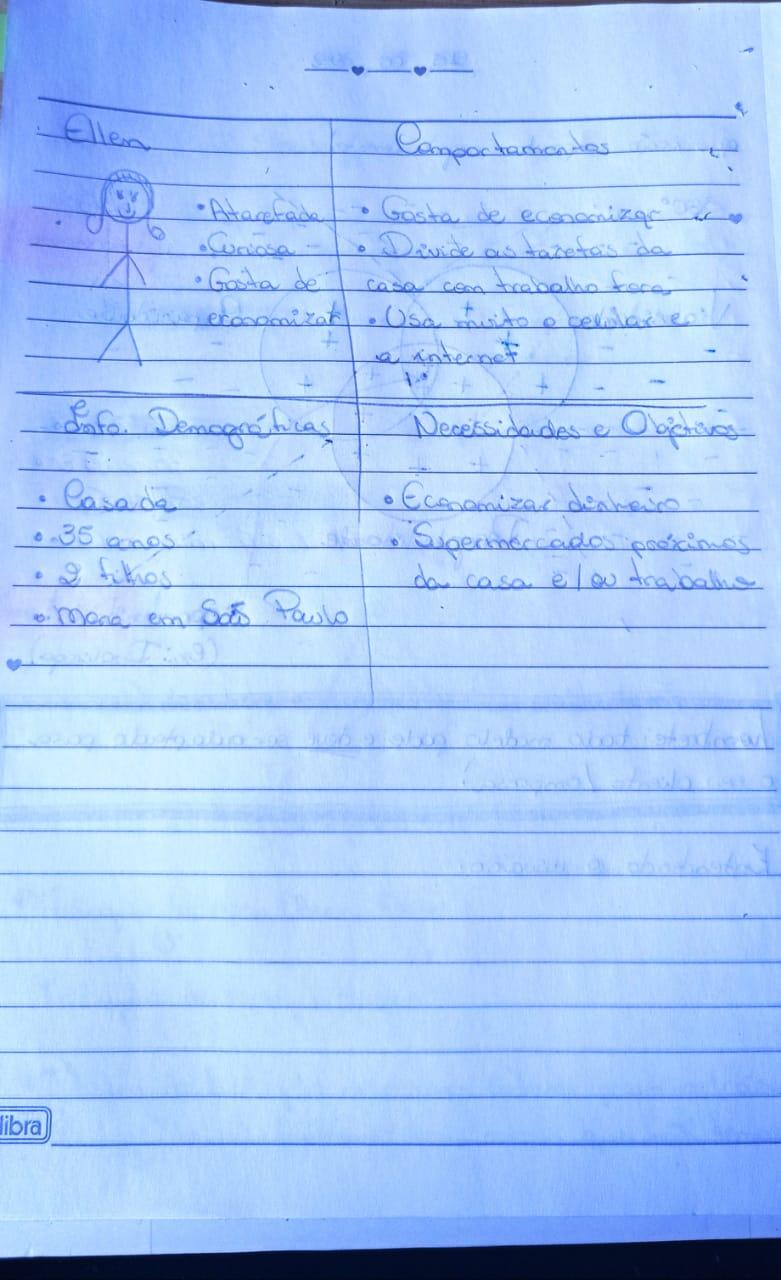 Ellen
• Atarefada
• Curiosa
• Gosta de
economizar
Comportamentos
• Gosta de economizar
• Divide as tarefas da
casa com trabalho fora
• Usa muito o celular e
a internet
Info. Demográficas
• Casada
• 35 anos
• 2 filhos
• Mora em São Paulo
Necessidades e Objetivos
• Economizar dinheiro
• Supermercados próximos
da casa e/ou trabalho
libra